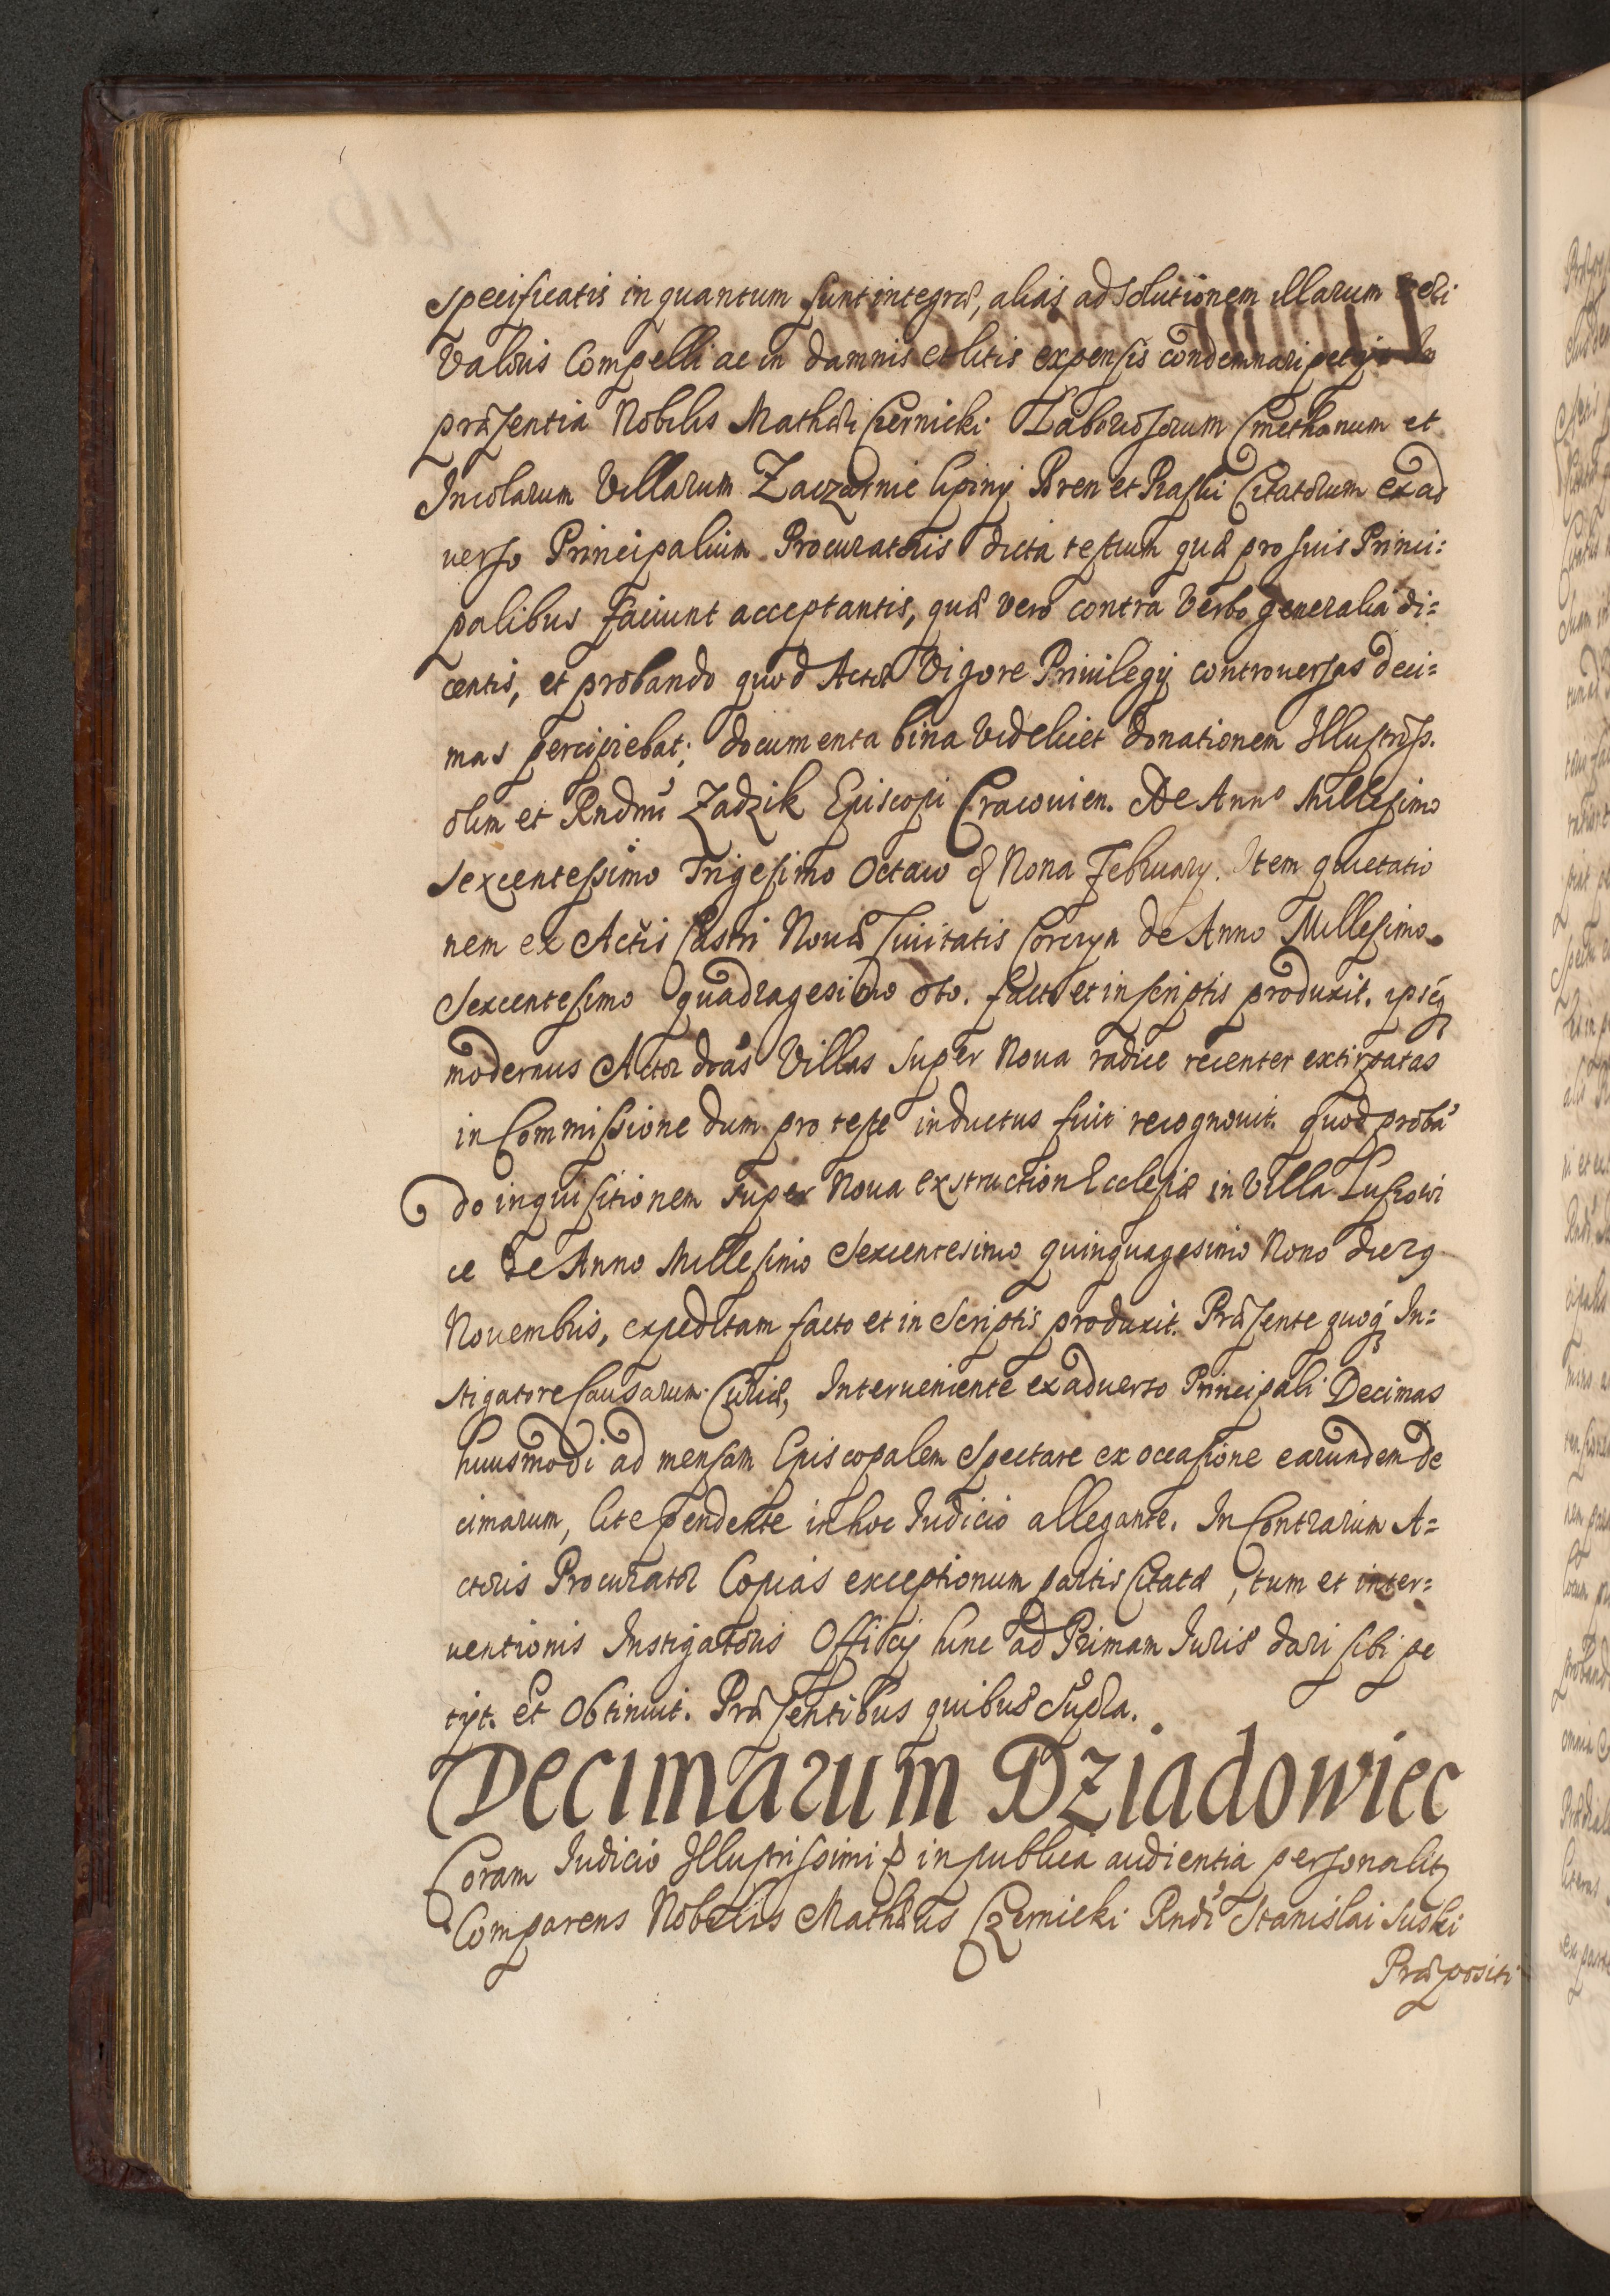 specificatis in quantum sunt integræ, alias ad solutionem illarum veri
Valoris Compelli ac in damnis et litis expensis condemnari petijt In
præsentia Nobilis Mathæi Czernicki Laboriosorum Cmethonum et
Incolarum Villarum Zaczarnie lipiny Bren et Citatorum ex ad
verso Principalium Procuratoris dicta testium quæ pro suis Princi=
palibus faciunt acceptantis, quæ vero contra Verbo generalia di=
centis, et probando quod Actor Vigore Priuilegij controuersas deci=
mas percipiebat; documenta bina Videlicet donationem Illustriss.
olim et Rndmi Zadzik Episcopi Cracouien. De Anno Millesimo
sexcentessimo Trigesimo Octauo & Nona February. Item quietatio
nem ex Actis Castri Nouæ Ciuitatis Corczyn de Anno Millesimo
Sexcentesimo quadragesimo 8to. facto et in scriptis produxit. ipseq
modernus Actor dras Villas super Noua radice recenter extirpatas
in Commissione dum pro teste inductus fuit recognouit. quod proba
do inquisitionem super Noua exstruction Ecclesiæ in Villa
ce de Anno Millesimo Sexcentesimo quinquagesimo Nono die 29
Nouembris, expeditam facto et in Scriptis produxit. Præsente quoq In=
stigatore Causarum Curiæ, Interueniente ex aduerso Principali Decimas
huiusmodi ad mensam Episcopalem Spectare ex occasione earundem de
cimarum, lite pendente in hoc Iudicio allegante. In Contrarium A=
ctoris Procurator Copias exceptionum partis Citatæ, tum et inter=
uentionis Instigatoris Officij hinc ad Primam Iuris dari sibi pe
tijt. et Obtinuit. Præsentibus quibus Supra.
Decimarum Dziadowiec
Coram Iudicio Illustrissimi & in publica audientia personalit
Comparens Nobilis Mathæus Czernicki Rndi Stanislai Suski
Præpositi